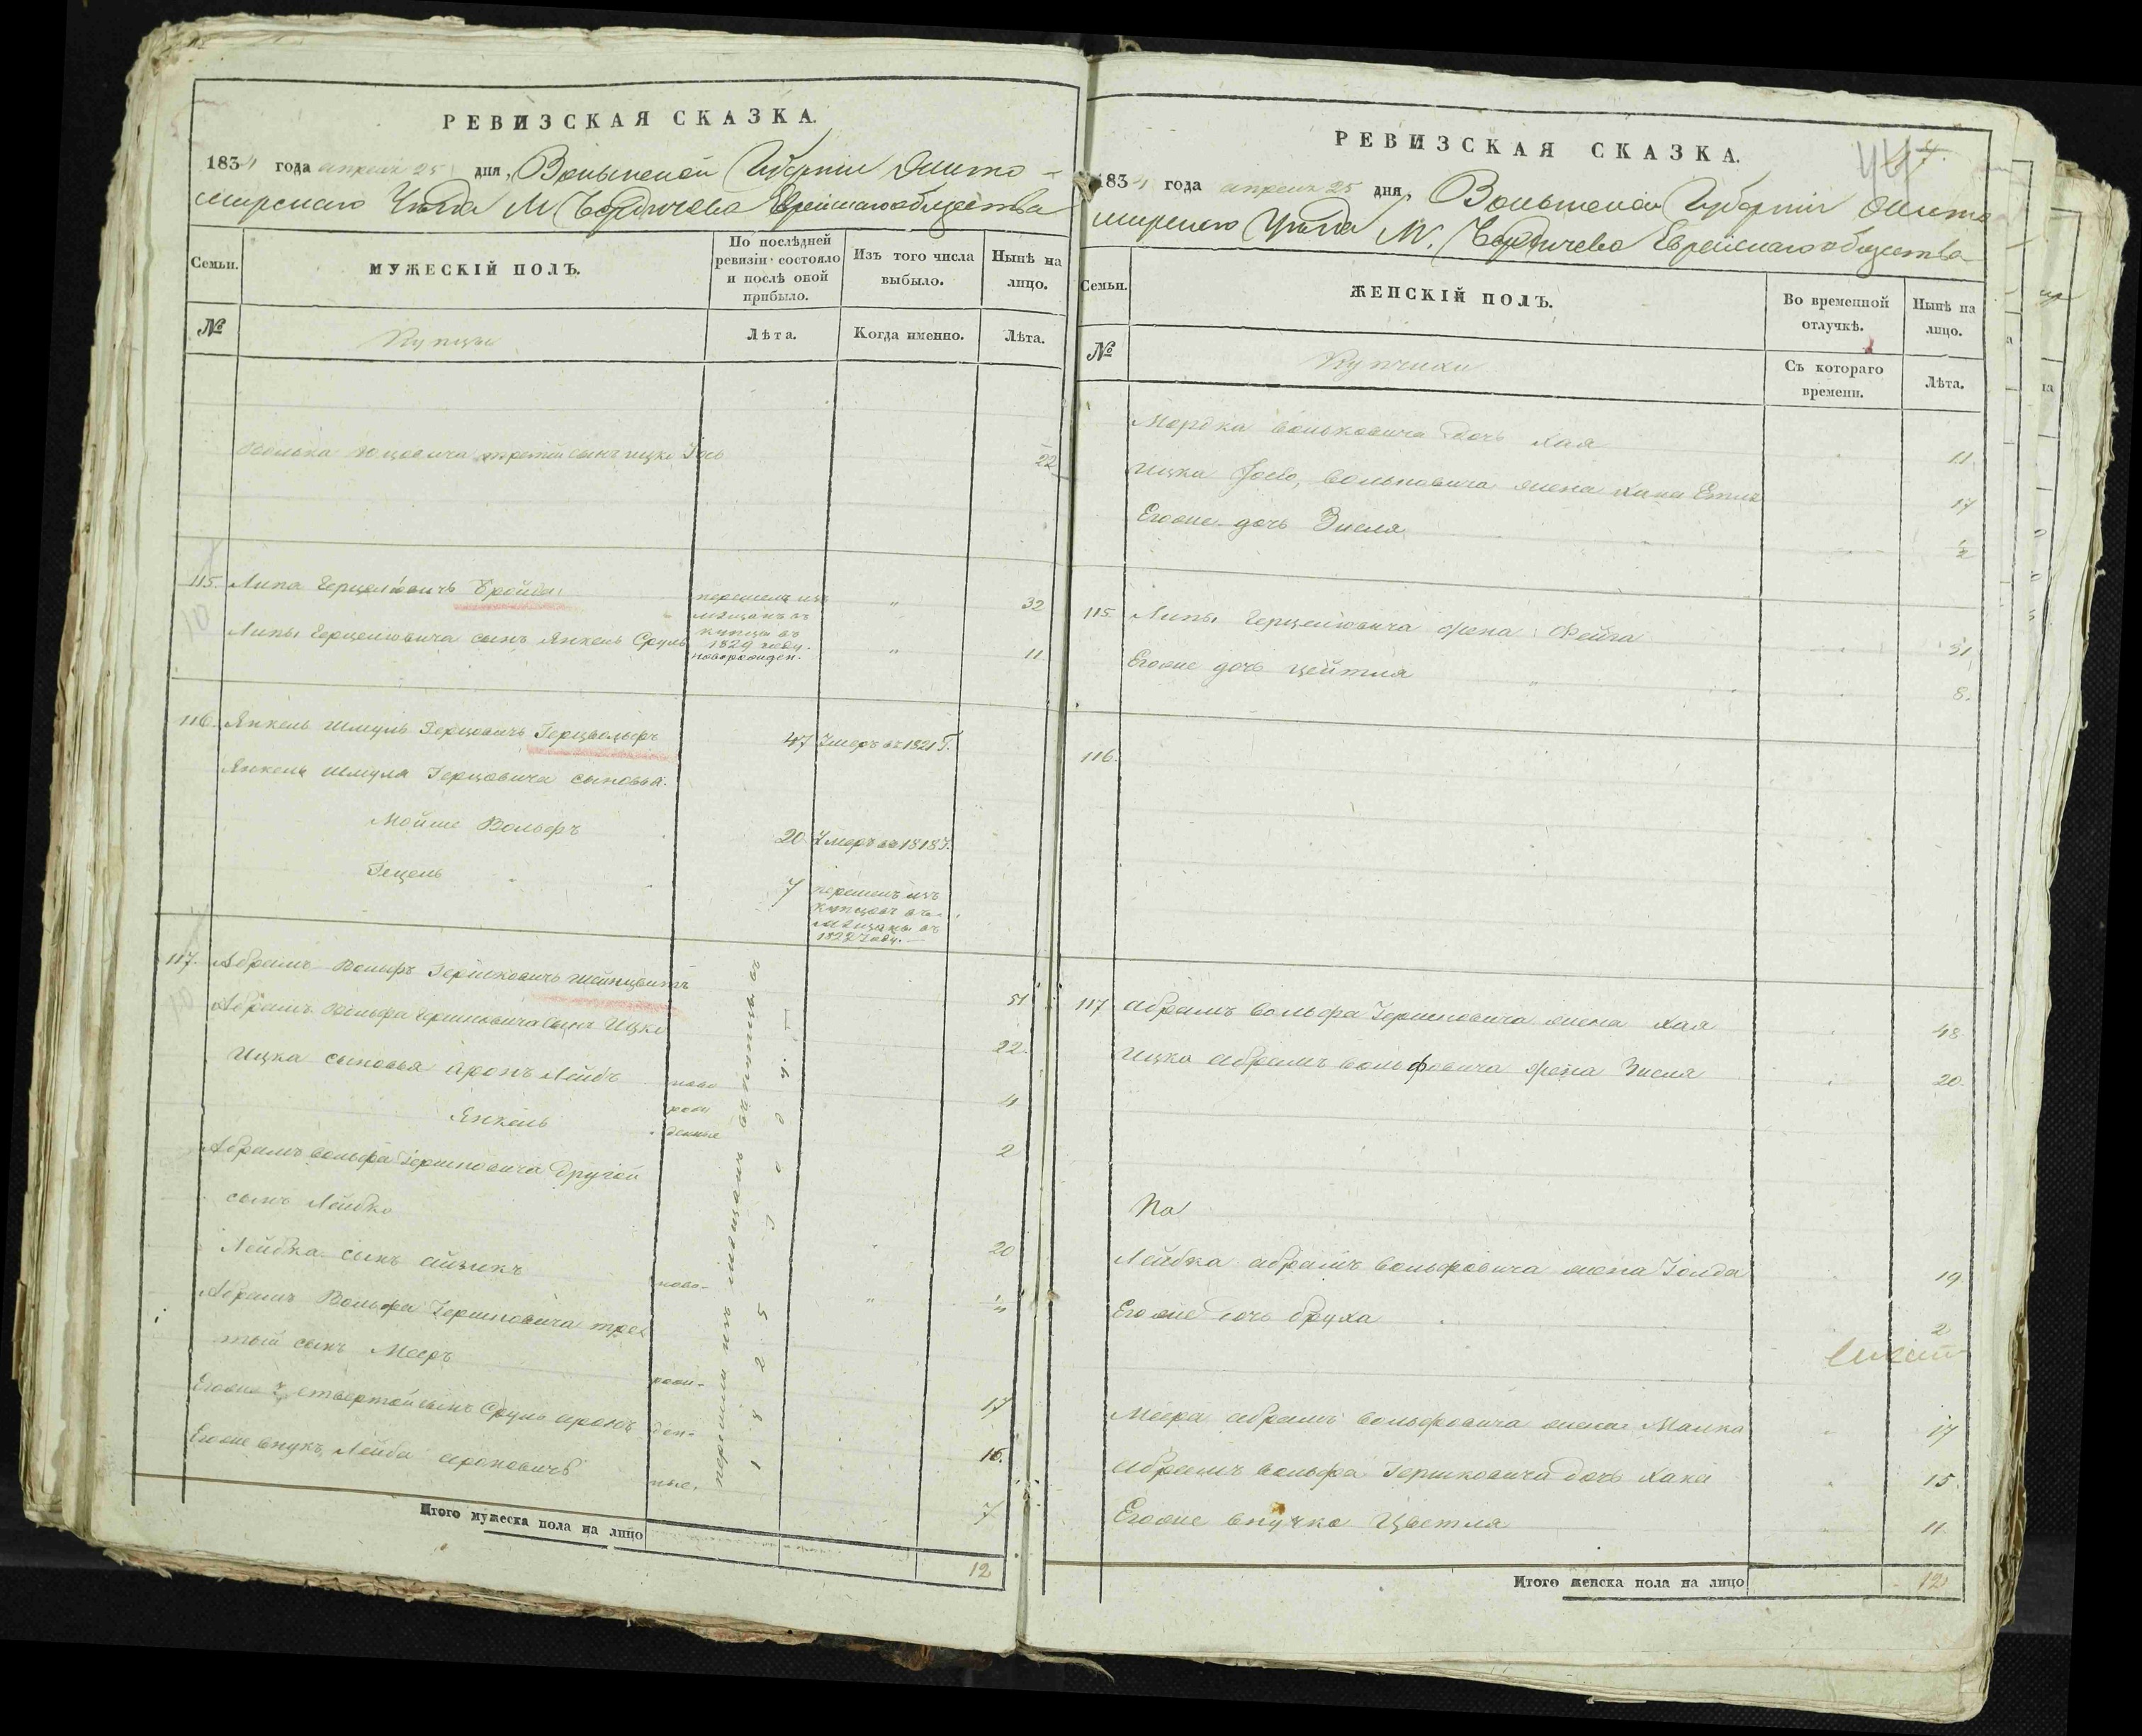 РЕВИЗСКАЯ СКАЗКА.
1834 года апреля 25 дня, Волынской Губерніи Жито-
мирскаго Уѣзда М Бердичева Еврейскаго общества
Семьи.
МУЖЕСКІЙ ПОЛЪ.
По послѣдней ревизіи состояло и послѣ оной прибыло.
Изъ того числа выбыло.
Нынѣ на лицо.
№
Купцы
Лѣта.
Когда именно.
Лѣта.
третій сынъ Ицко Іось 22
115. Липа Герцелiовичъ Бройда перешелъ изъ мѣщанъ въ купцы въ 1829 году. " 32
Липы Герцелiовича сынъ Янкель Сруль новорожден. " 11
116. Янкель Шмуль Герцовичъ Герцвольфъ 47 Умеръ въ 1821 Г.
Янкель Шмуля Герцовича сыновья.
Мойше Вольфъ 20 Умеръ въ 1818 Г.
Гецель 7 перешелъ изъ купцовъ въ мѣщаны въ 1827 году.
117. Абрамъ Вольфъ Гершковичъ 51
Абрамъ Вольфа Гершковича сынъ Ицко 22.
Ицка сыновья Аронъ Лейбъ ново 4
Янкель рож денные 2
Абрамъ Вольфа Гершковича другой
сынъ Лейбко 20
Лейбка сынъ Айзикъ ново- "
Абрамъ Вольфа Гершковича тре
тый сынъ Мееръ рож- 17
Егоже четвертой сынъ Сруль Аронъ ден- 16.
Егоже внукъ Лейба Ароновичъ ные. 7
перешли изъ мѣщанъ въ купцы въ
1825 Году.
Итого мужеска пола на лицо 12
РЕВИЗСКАЯ СКАЗКА.
47.
1834 года апреля 25 дня, Волынской Губерніи Жито
мирскаго Уѣзда М. Бердичева Еврейскаго общества
Семьи.
ЖЕНСКІЙ ПОЛЪ.
Во временной отлучкѣ.
Нынѣ на лицо.
№
Купчихи
Съ котораго времени.
Лѣта.
Мордка Вольковича дочь Хая 11
Ицка Іось, Вольковича жена Хана Етля 17
Егоже дочь Зисля ½
115. Липы Герцелiовича жена Фейга 31
Егоже дочь Цейтля " 8.
116.
117 Абрамъ Вольфа Гершковича жена Хая 48
Ицка Абрамъ Вольфовича жена Зисля 20.
Лейбка Абрамъ Вольфовича жена Голда 19
Егоже дочь Бруха 2
Меера Абрамъ Вольфовича жена Малка 17
Абрамъ Вольфа Гершковича дочь Хана 15
Егоже внучка Цветля 11.
Итого женска пола на лицо 12